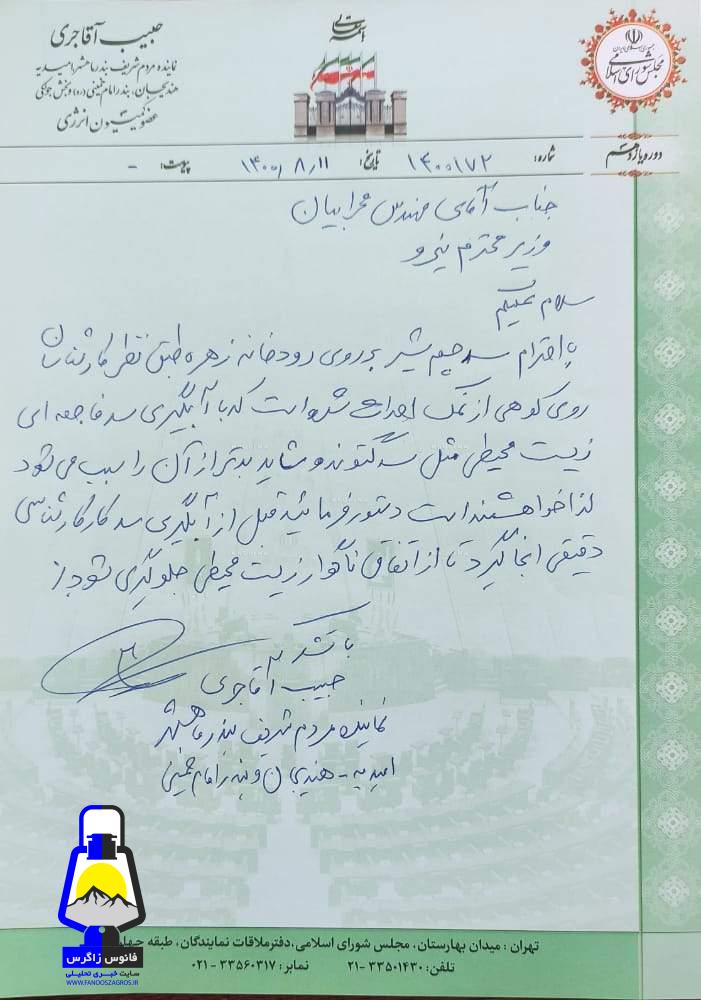 بسمه تعالی
جمهوری اسلامی ایران
مجلس شورای اسلامی
حبیب آقاجری
نماینده مردم شریف بندر ماهشهر، امیدیه
هندیجان، بندر امام خمینی (ره) و بخش جولکی
عضو کمیسیون انرژی
دوره یازدهم
شماره: ۱۴۰۰۱۷۲
تاریخ: ۱۴۰۰/۸/۱۱
پیوست: -
جناب آقای مهندس محرابیان
وزیر محترم نیرو
سلام علیکم
با احترام سد چم شیر بر روی رودخانه زهره طبق نظر کارشناسان
روی کوهی از نمک احداث شده است که با آبگیری سد فاجعه ای
زیست محیطی مثل سد گتوند و شاید بدتر از آن را سبب می شود
لذا خواهشمند است دستور فرمائید قبل از آبگیری سد کار کارشناسی
دقیقی انجام گیرد تا از اتفاق ناگوار زیست محیطی جلوگیری شود
با تشکر
حبیب آقاجری
نماینده مردم شریف بندر ماهشهر
امیدیه - هندیجان و بندر امام خمینی
تهران: میدان بهارستان، مجلس شورای اسلامی، دفتر ملاقات نمایندگان، طبقه چهار
تلفن: ۳۳۵۰۱۴۳۰ -۲۱ نمابر: ۳۳۵۶۰۳۱۷ -۰۲۱
فانوس زاگرس
سایت خبری تحلیلی
WWW.FANOOSZAGROS.IR